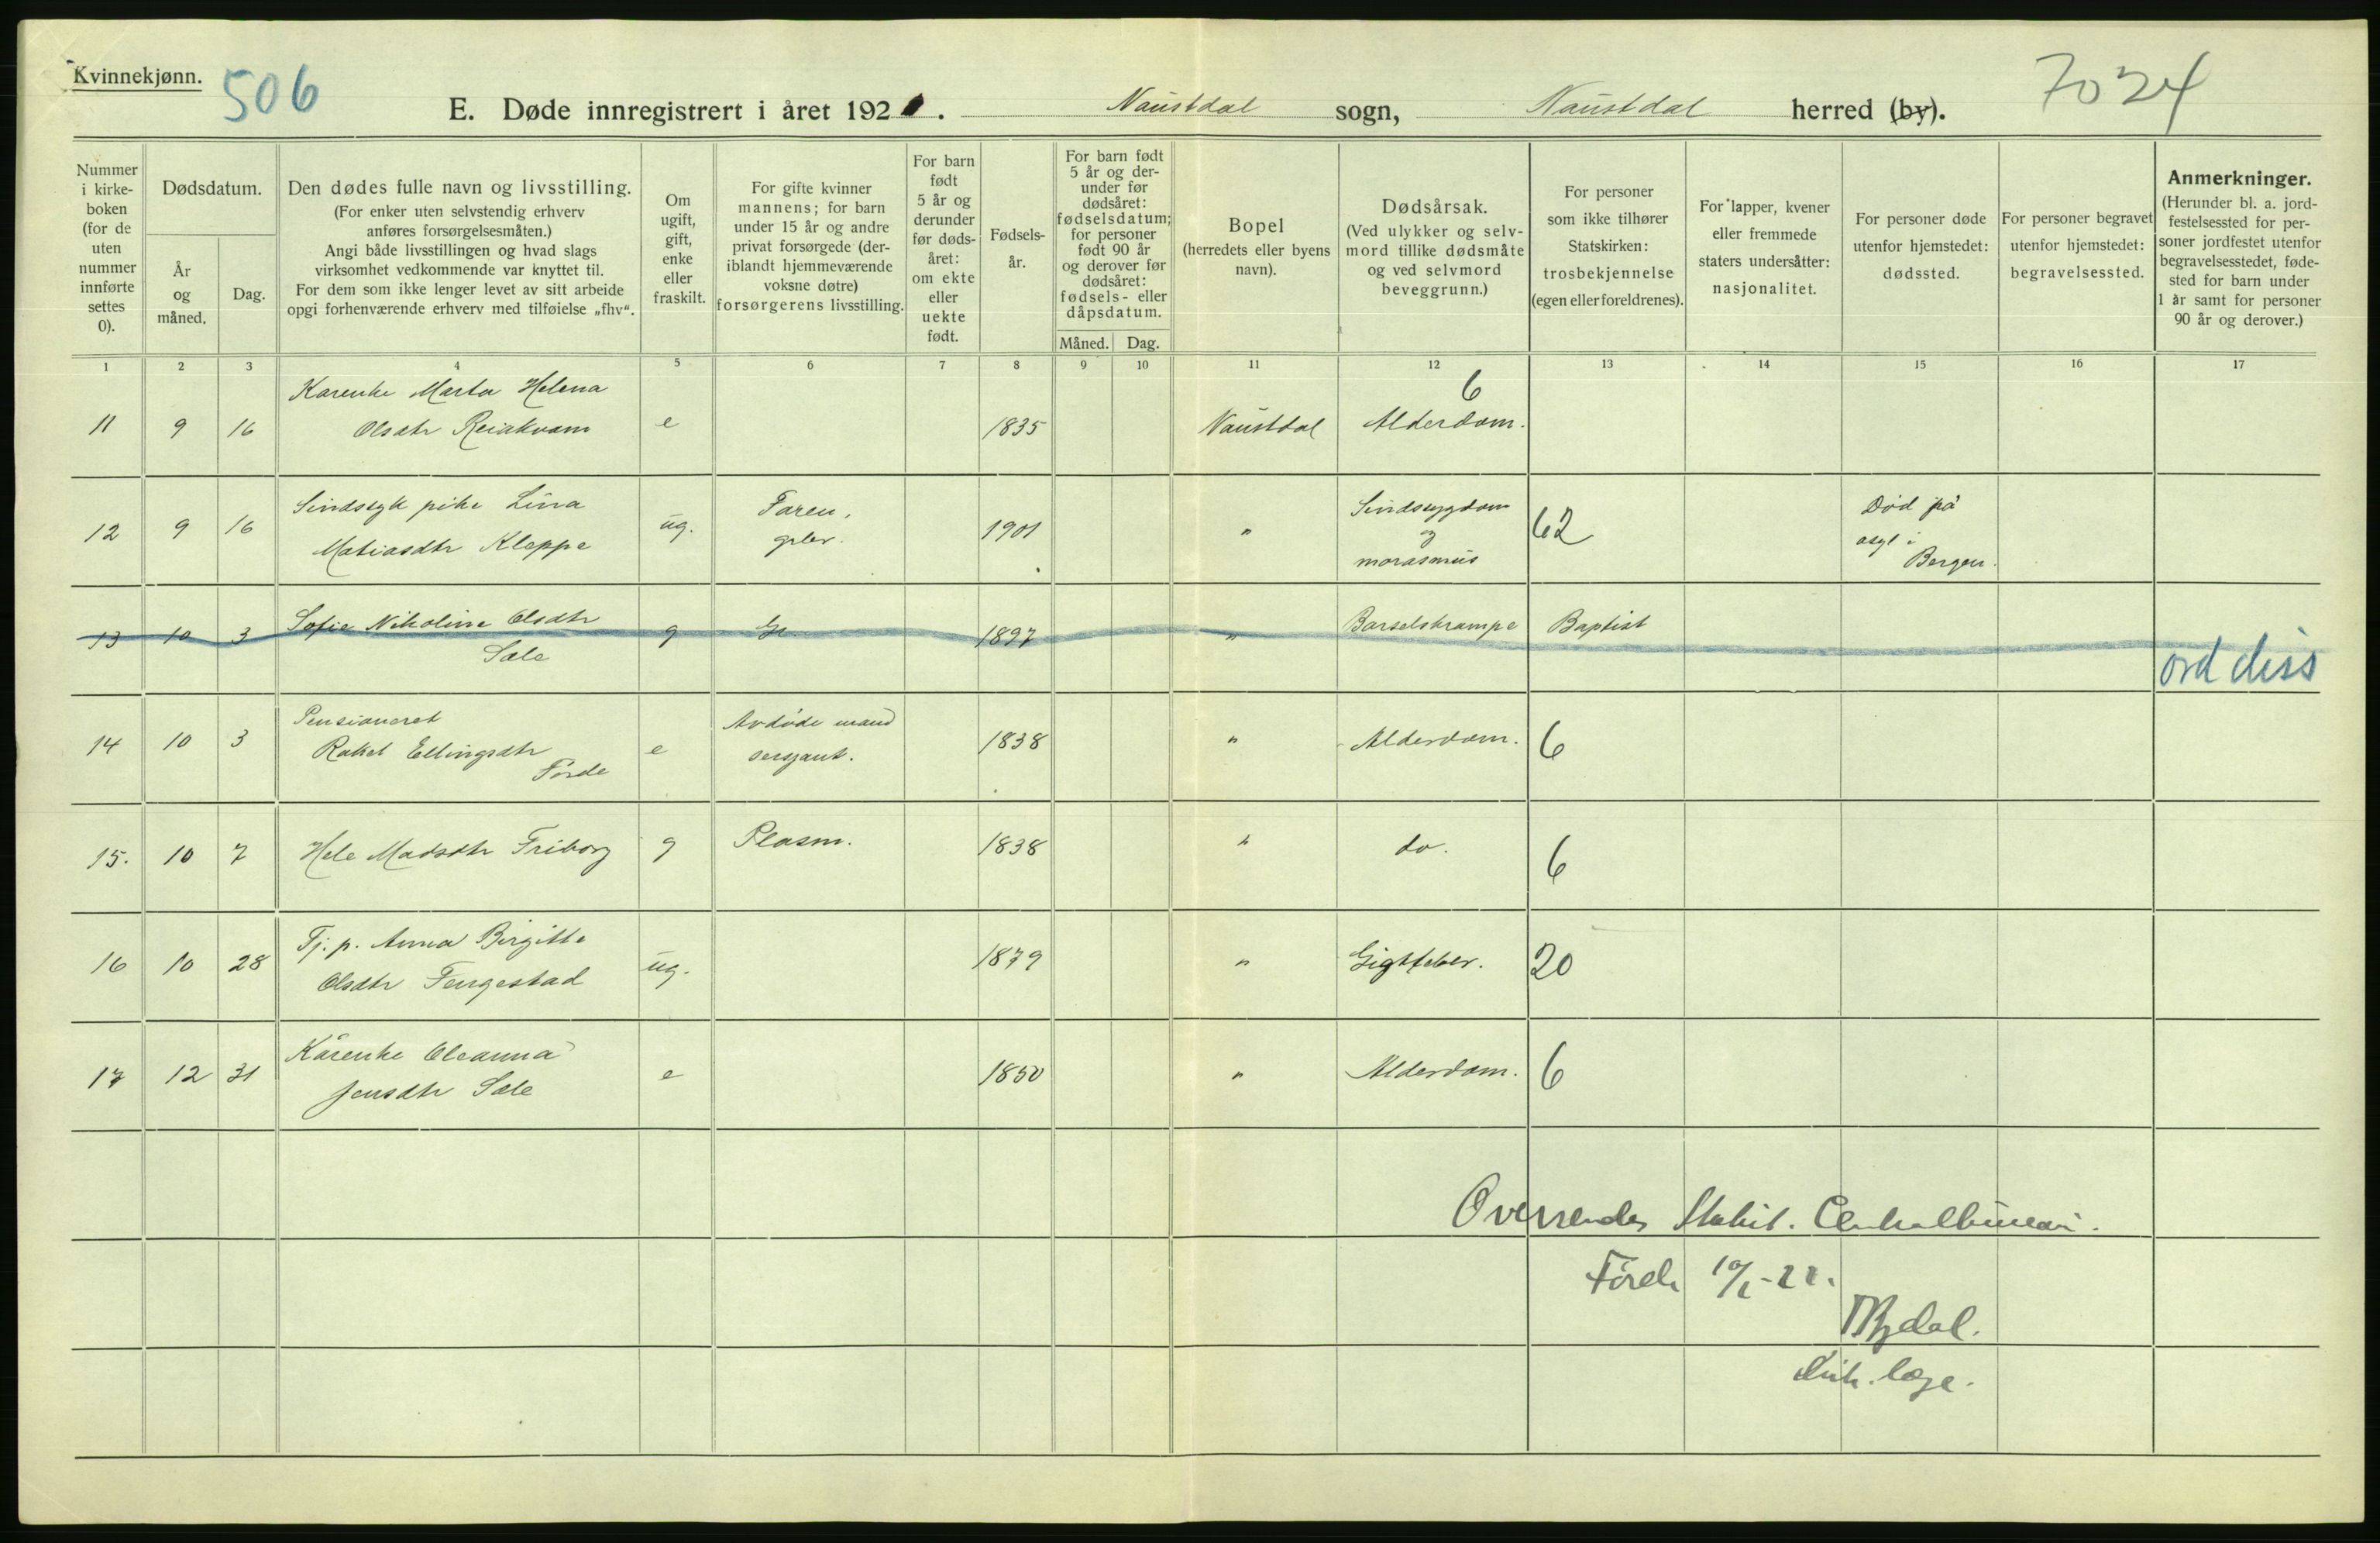 Kvinnekjønn.
506
7024
E. Døde innregistrert i året 192 . Naustdal sogn, Naustdal herred (by).
Nummer i kirke-boken (for de uten nummer innførte settes 0).
Dødsdatum.
År og måned.
Dag.
Den dødes fulle navn og livsstilling.
(For enker uten selvstendig erhverv
anføres forsørgelsesmåten.)
Angi både livsstillingen og hvad slags
virksomhet vedkommende var knyttet til.
For dem som ikke lenger levet av sitt arbeide
opgi forhenværende erhverv med tilføielse „fhv“.
Om ugift, gift, enke eller fraskilt.
For gifte kvinner
mannens; for barn
under 15 år og andre
privat forsørgede (der-
iblandt hjemmeværende
voksne døtre)
forsørgerens livsstilling.
For barn født 5 år og derunder før døds-året: om ekte eller uekte født.
Fødsels-år.
For barn født
5 år og der-
under før
dødsåret:
fødselsdatum;
for personer
født 90 år
og derover før
dødsåret:
fødsels- eller
dåpsdatum.
Måned. Dag.
Bopel
(herredets eller byens
navn).
Dødsårsak.
(Ved ulykker og selv-
mord tillike dødsmåte
og ved selvmord
beveggrunn.)
For personer
som ikke tilhører
Statskirken:
trosbekjennelse
(egen eller foreldrenes).
For lapper, kvener
eller fremmede
staters undersåtter:
nasjonalitet.
For personer døde
utenfor hjemstedet:
dødssted.
For personer begravet
utenfor hjemstedet:
begravelsessted.
Anmerkninger.
(Herunder bl. a. jord-
festelsessted for per-
soner jordfestet utenfor
begravelsesstedet, føde-
sted for barn under
1 år samt for personer
90 år og derover.)
1 2 3 4 5 6 7 8 9 10 11 12 13 14 15 16 17
Karenke Marta Helena 6
11 9 16 Olsdtr Reiakvam e 1835 Naustdal Alderdom.
Sindssyk pike Lina Faren, Sindssygdom Død på
12 9 16 ug. gbr. 1901 " og 62 asyl i
Matiasdtr Kleppe marasmus Bergen.
13 10 3 Sofie Nikoline Olsdtr g 1897 " Barselskrampe Baptist
Sæle ord diss
Pensioneret Avdøde mand
14 10 3 Rakel Ellingsdtr e sersjant. 1838 " Alderdom. 6
Førde
15. 10 7 Hele Madsdtr Friborg g Plasm. 1838 " do. 6
Tj. p. Anna Birgitte
16 10 28 Olsdtr Fengestad ug. 1879 " Gigtfeber. 20
Karenke Oleanna
17 12 31 Jensdtr Sæle e 1850 " Alderdom. 6
Oversendes Statist. Centralbureau.
Førde